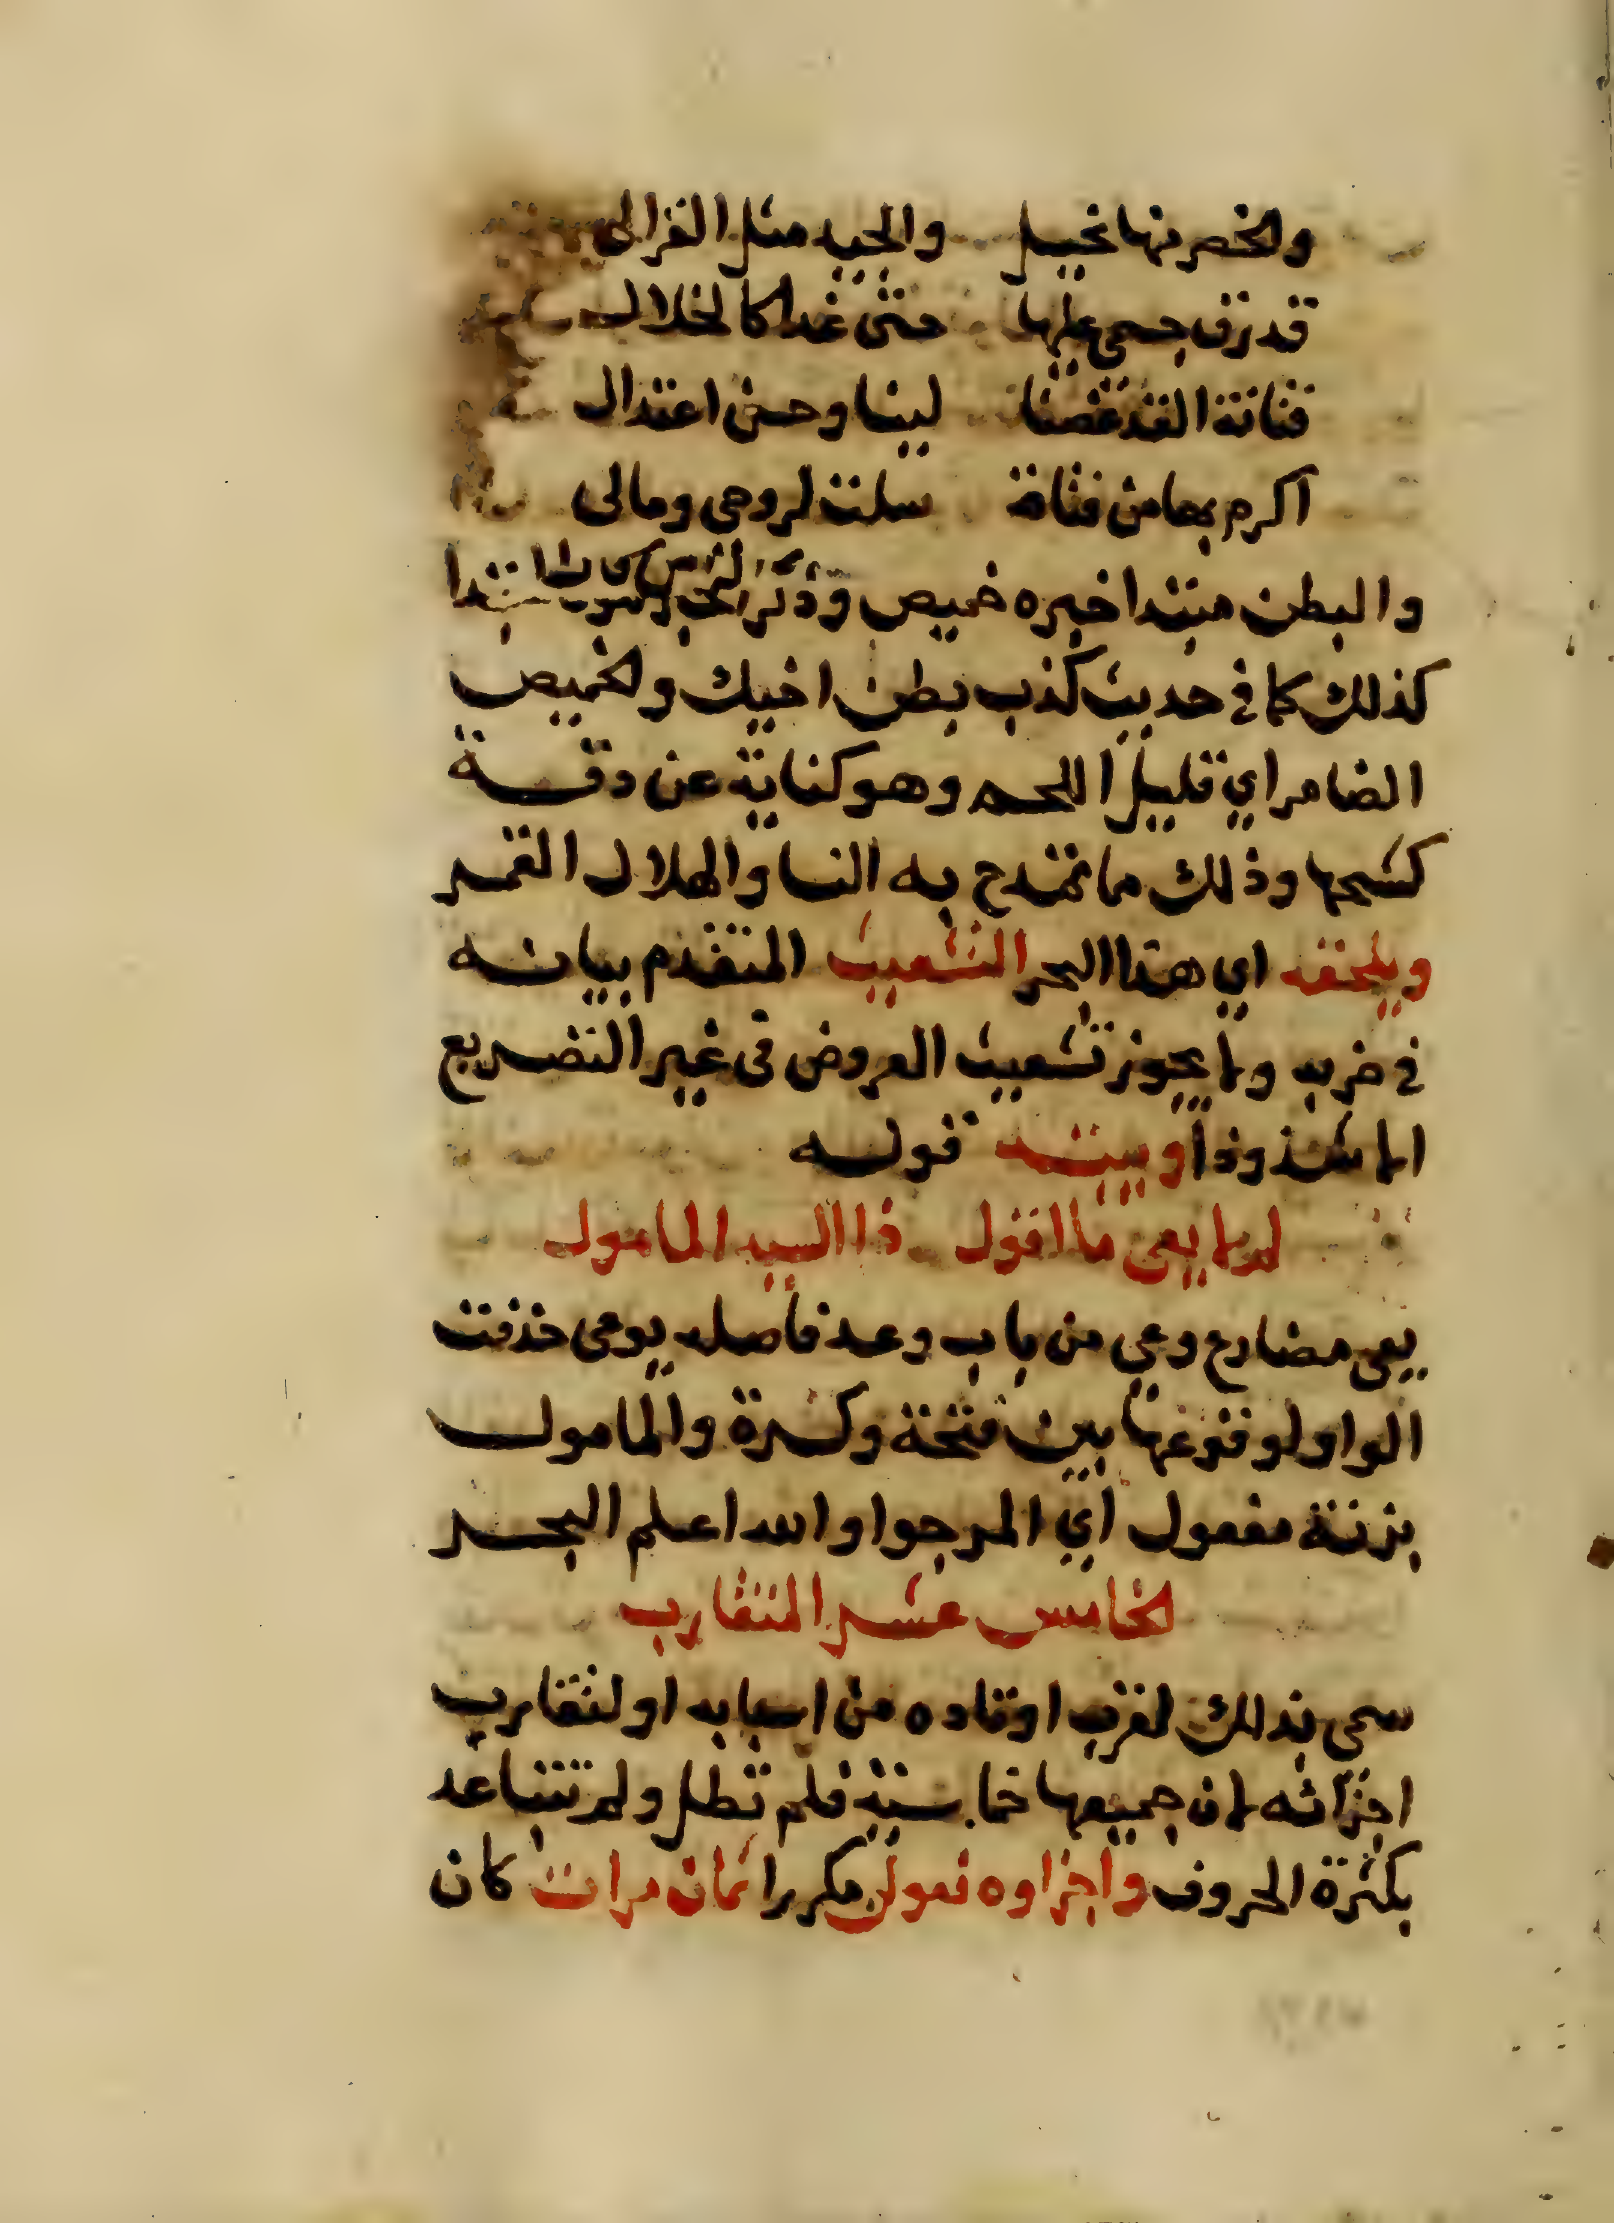 والخصر منها نحيل والجيد مثل الغزالى
قد رق جسمى عليها حتى غدا كالخلال
فتانة القد غصنا لينا وحسن اعتدال
اكرم بها من فتاة سلت لروحى ومالى
والبطن مبتدا خبره خميص وذكر الخبر لكون المبتدا
كذلك كما في حديث كذب بطن اخيك والخميص
الضامر اي قليل اللحم وهو كناية عن دقة
كشحها وذلك مما تمتدح به النسا والهلال القمر
ويلحقه اي هذا البحر التشعيث المتقدم بيانه
في ضربه ولا يجوز تشعيث العروض فى غير التصريع
الا شذوذا وبيته قوله
لم لا يعى ما اقول ذا السيد المامول
يعى مضارع وعى من باب وعد فاصله يوعى حذفت
الواو لوقوعها بين فتحة وكسرة والمامول
بزنة مفعول اي المرجوا والله اعلم البحر
الخامس عشر المتقارب
سمى بذلك لقرب اوتاده من اسبابه او لتقارب
اجزائه لان جميعها خماسية فلم تطل ولم تتباعد
بكثرة الحروف واجزاوه فعولن مكررا ثمان مرات كان